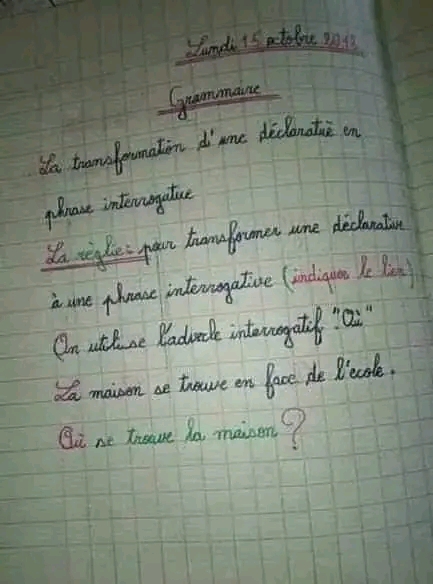 Lundi 15 octobre 2018
Grammaire
La transformation d'une déclarative en
phrase interrogative
La règlie : pour transformer une déclarative
à une phrase interrogative (indiquer le lieu)
On utilise l'adverbe interrogatif "Où"
La maison se trouve en face de l'école.
Où se trouve la maison ?